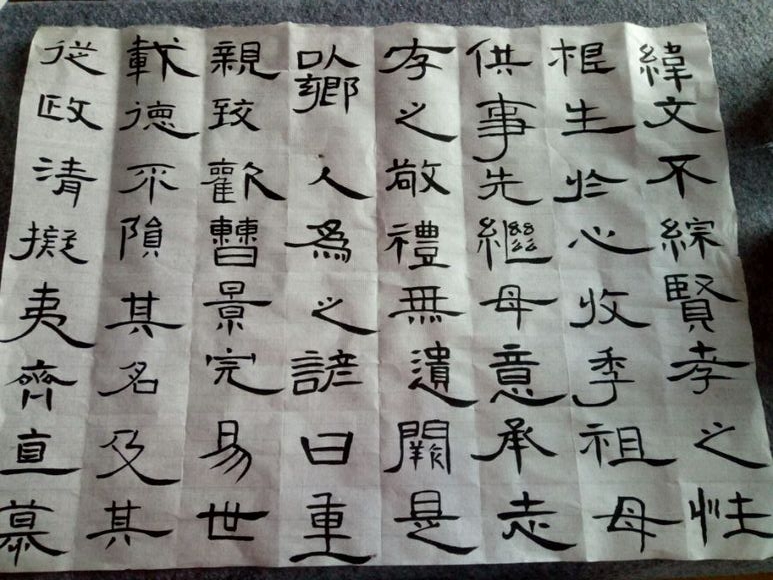 緯文不綜賢孝之性
根生於心收季祖母
供事先繼母意承志
存之敬禮無遺闕是
以鄉人爲之諺曰重
親致歡曹景完易世
載德不隕其名及其
從政清擬夷齊直慕